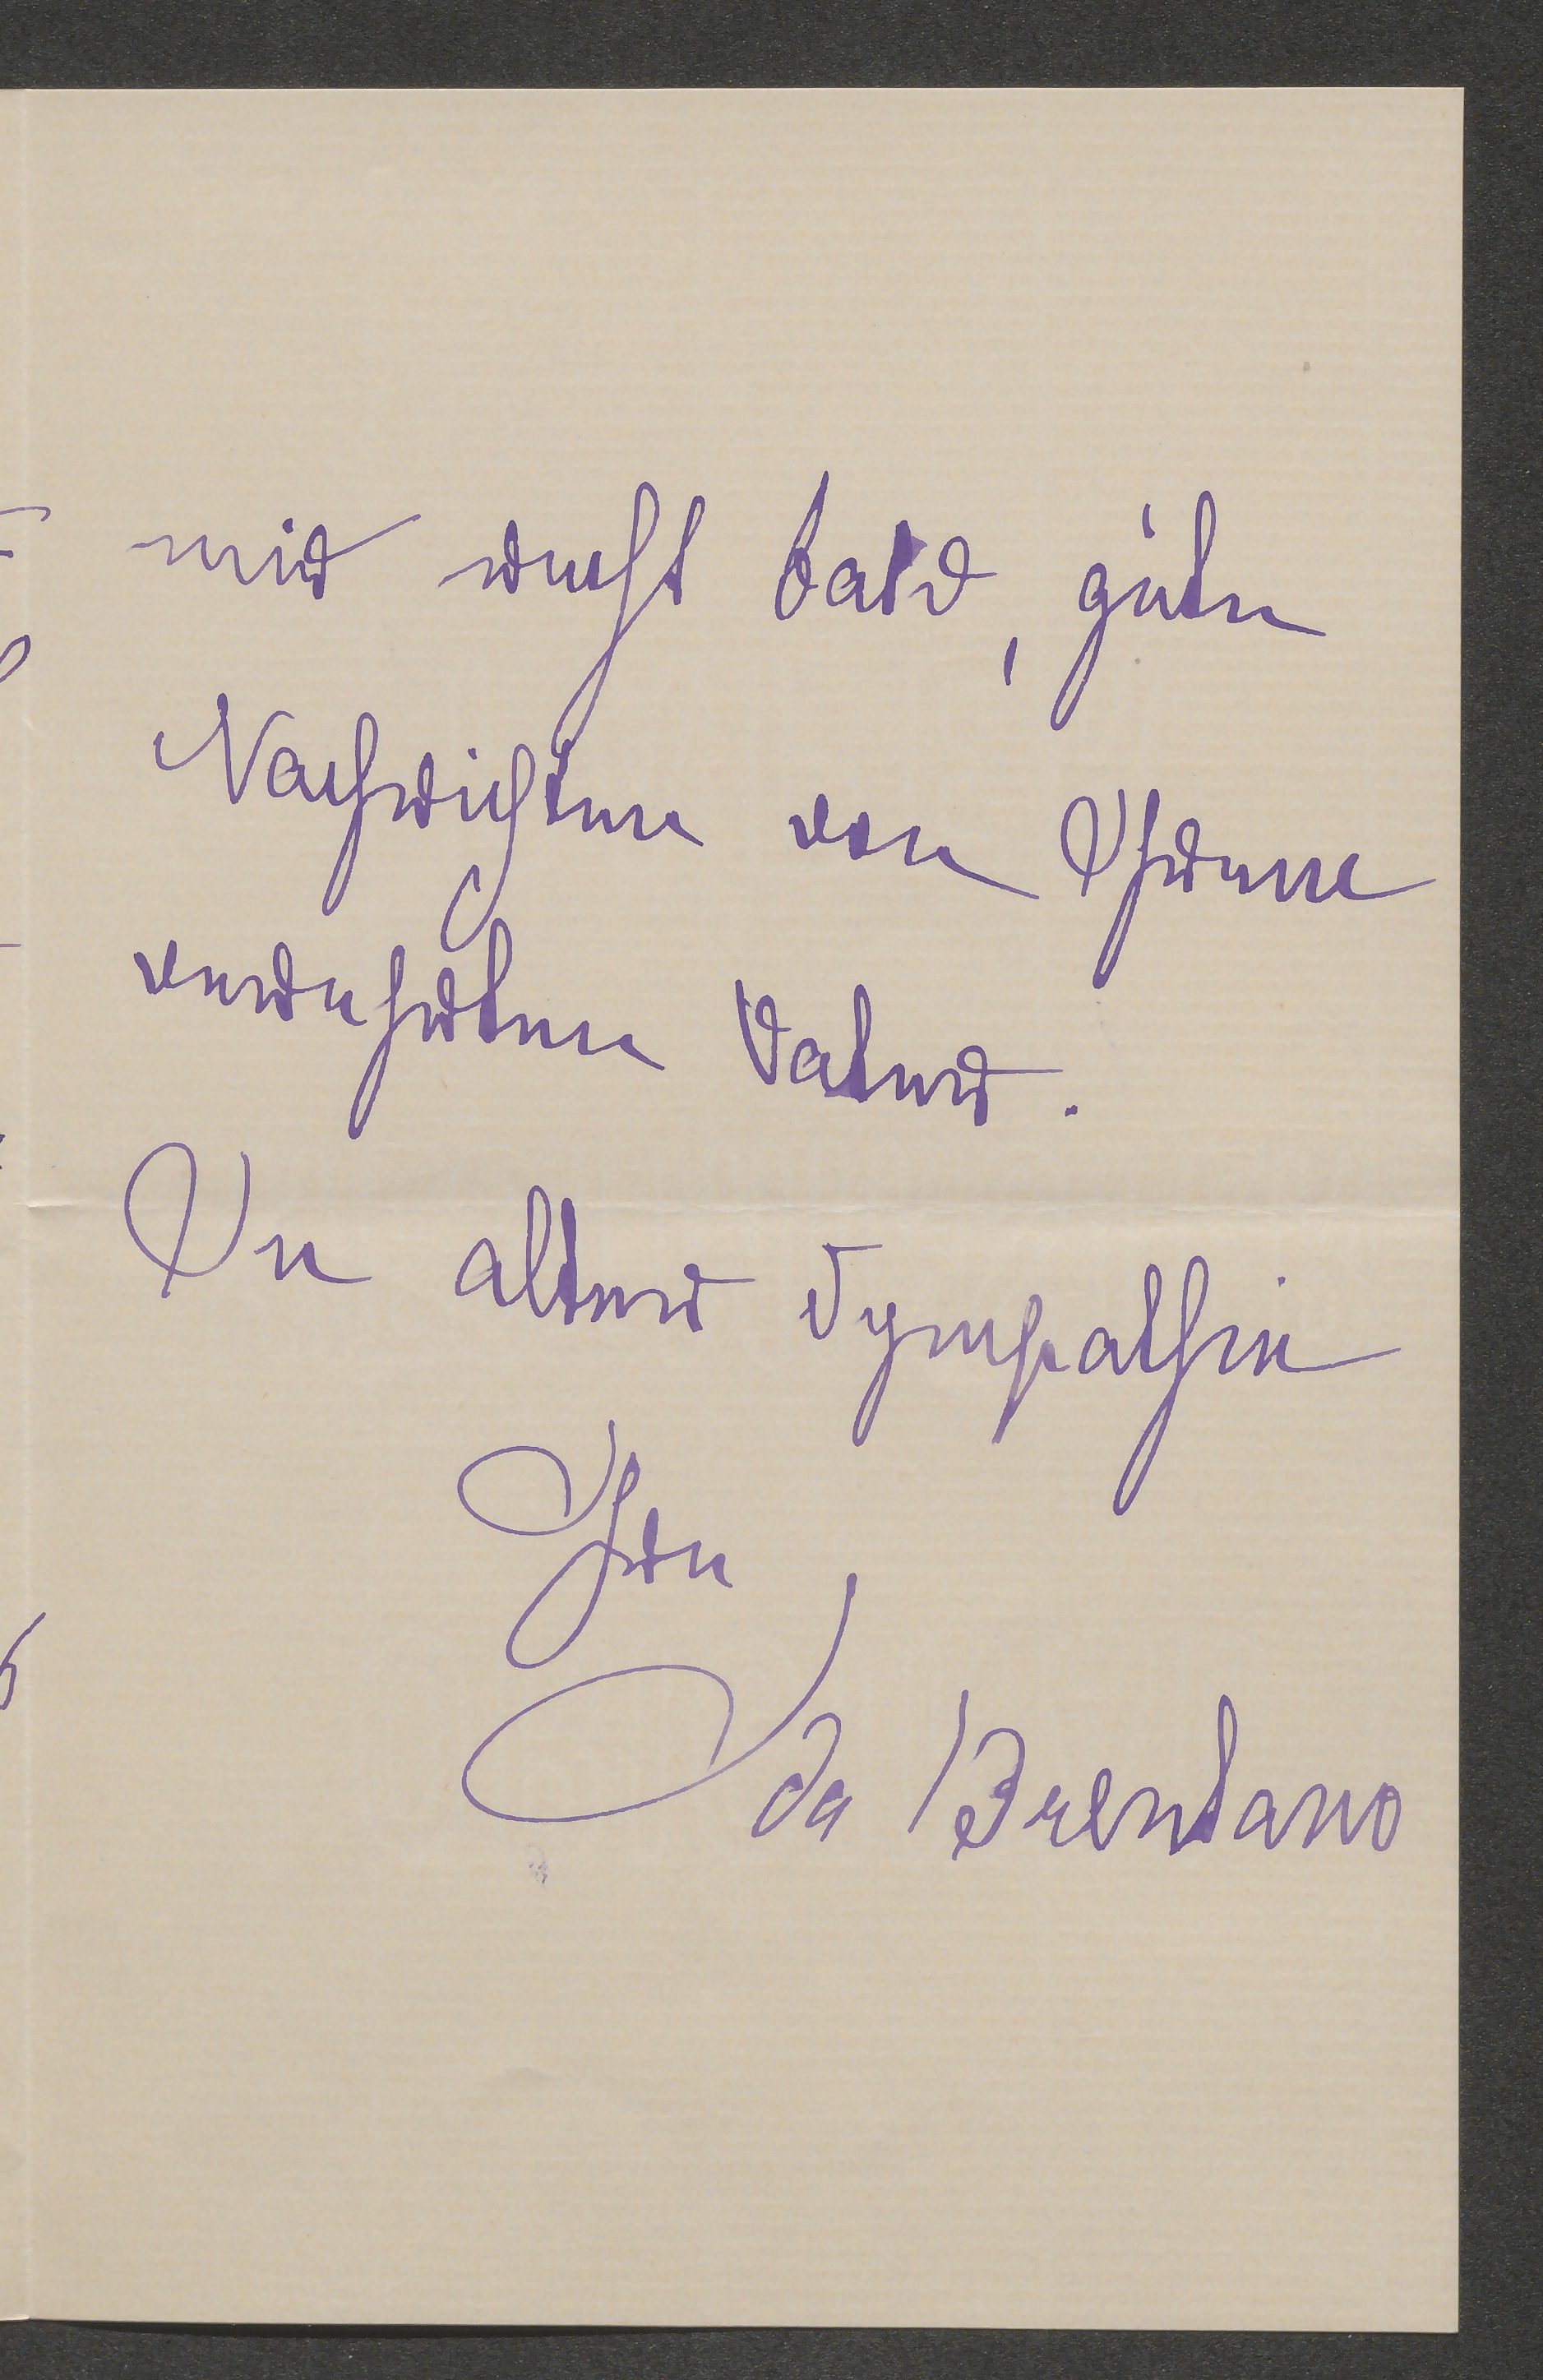 mir recht bald, gute
Nachrichten von Ihrem
verehrten Vater.
In alter Sympathie
Ihre
Ida Brentano